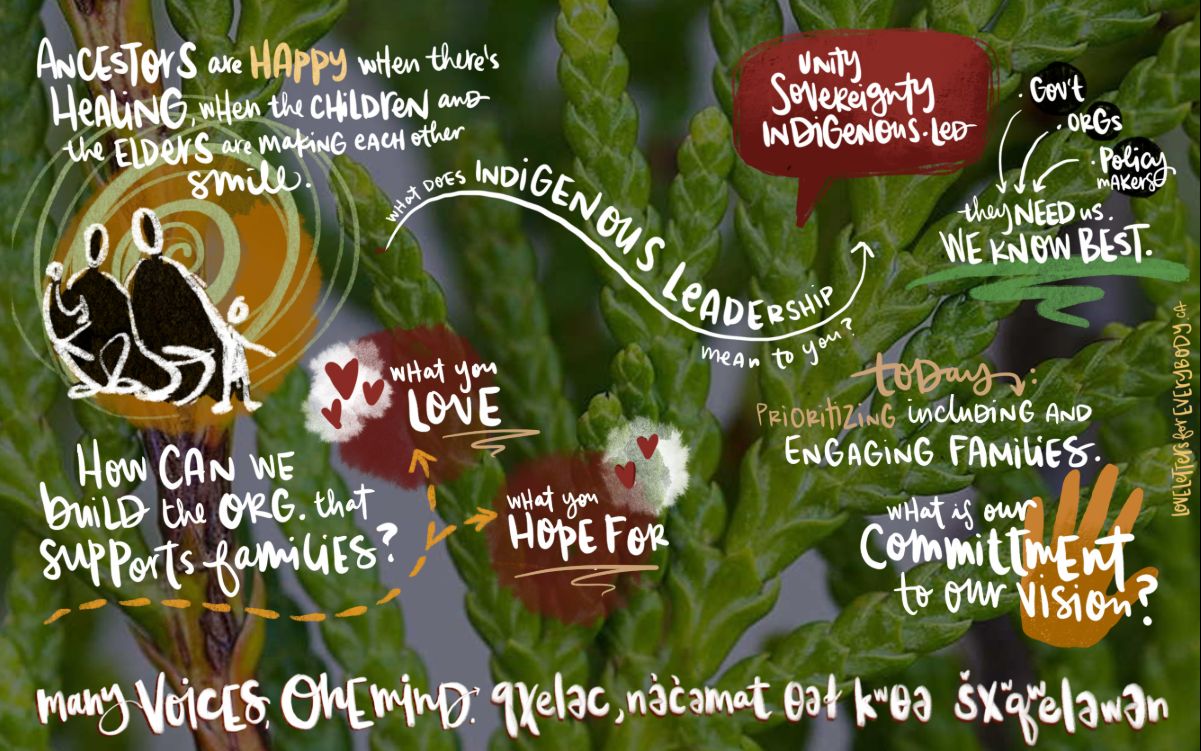 ANCESTORS are HAPPY when there's
HEALING, when the CHILDREN and
the ELDERS are making each other
smile.
WHAT DOES INDIGENOUS LEADERSHIP
mean to you?
UNITY
Sovereignty
INDIGENOUS-LED
· Gov't
· ORGs
· Policy
makers
they NEED us.
WE KNOW BEST.
what you
LOVE
what you
HOPE FOR
HOW CAN WE
build the ORG. that
supports families?
today:
PRIORITIZING including AND
ENGAGING FAMILIES.
what is our
Committment
to our vision?
LOVELETTERSforEVERYBODY.CA
many Voices, One mind. qχeləc, nə̀c̀əmat θəɬ kʷθə šχʷq̓ʷeləwən